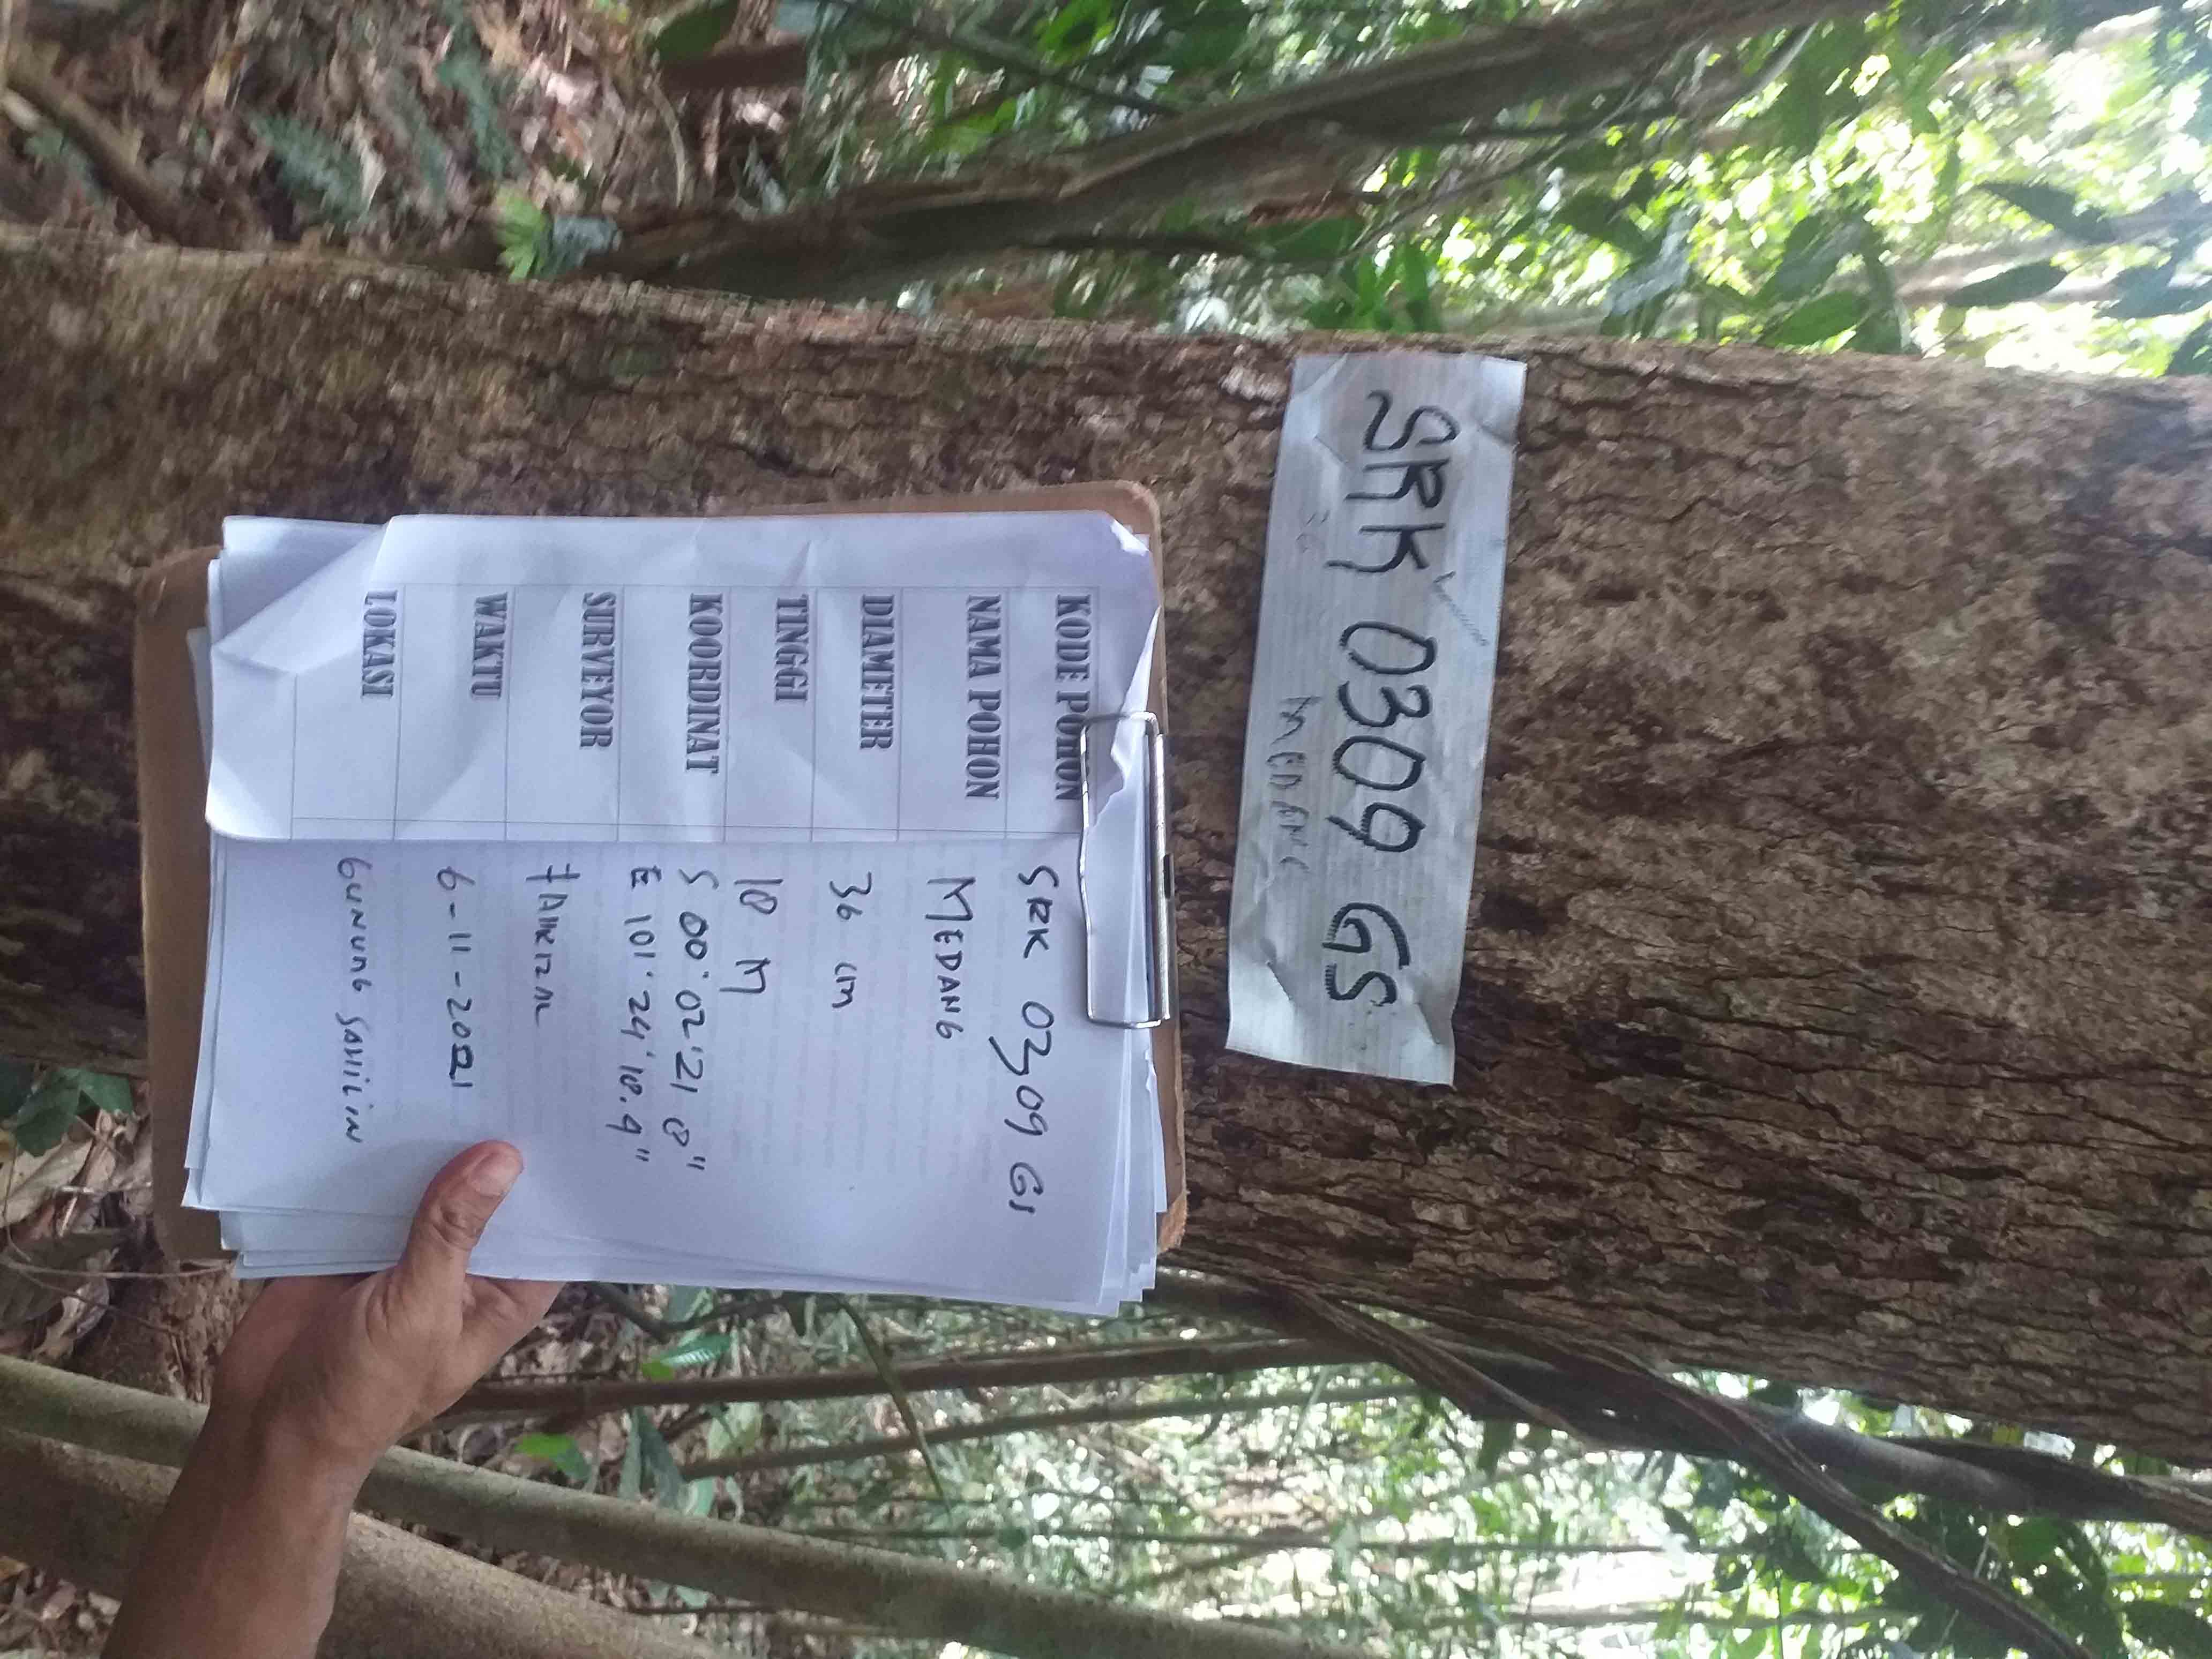 SRK 0309 GS
MEDANG
KODE POHON SRK 0309 GS
NAMA POHON MEDANG
DIAMETER 36 cm
TINGGI 18 M
KOORDINAT S 00° 02' 21 8"
E 101° 24' 18.9"
SURVEYOR
WAKTU 6-11-2021
LOKASI GUNUNG SAHILIN